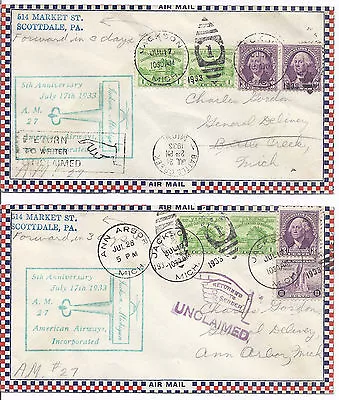 AIR MAIL
514 MARKET ST.
SCOTTDALE, PA.
Forward in 3 days
JACKSON
JUL 17
1030 AM
MICH
1
1933
5th Anniversary
July 17th 1933
A. M.
27
RETURN
TO WRITER
UNCLAIMED
Charles Gordon
General Delivery
Battle Creek,
Mich
BATTLE CREEK
JUL 2
1933
MICH
AIR MAIL
AIR MAIL
514 MARKET ST.
SCOTTDALE, PA.
Forward in 3
ANN ARBOR
JUL 28
5 PM
MICH
JACKSON
JUL 17
1030 AM
MICH
1
1933
5th Anniversary
July 17th 1933
A. M.
27
American Airways,
Incorporated
RETURNED
TO
SENDER
UNCLAIMED
Charles Gordon
General Delivery
Ann Arbor, Mich
A.M. #27
AIR MAIL